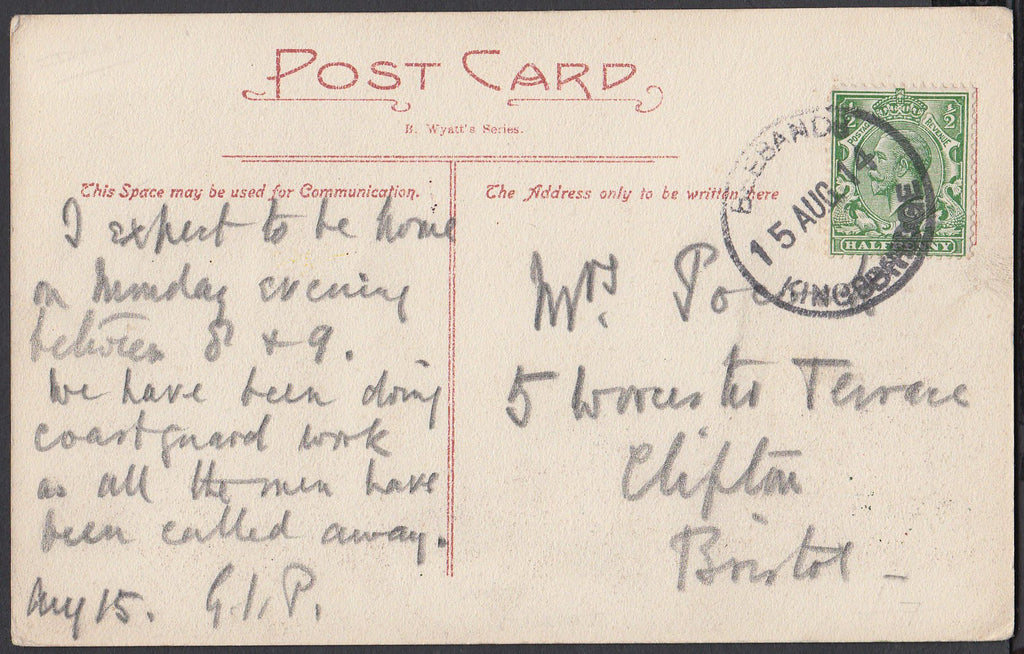 POST CARD
B. Wyatt's Series.
This Space may be used for Communication.
The Address only to be written here
I expect to be home
on Monday evening
between 8 + 9.
We have been doing
coastguard work
as all the men have
been called away.
Aug 15. G.I.P.
Mrs.
5 Worcester Terrace
Clifton
Bristol
½ ½
POSTAGE REVENUE
HALFPENNY
15 AUG 14
KINGSBRIDGE